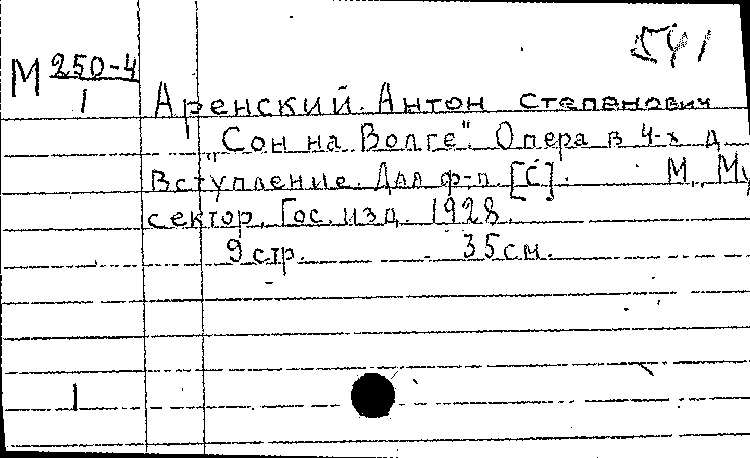 541
М 250-4
1
Аренский. Антон Степанович
"Сон на Волге". Опера в 4-х д
Вступление. Для ф-п. [С]. М., Му
сектор, Гос. изд. 1928.
9 стр. 35 см.
1